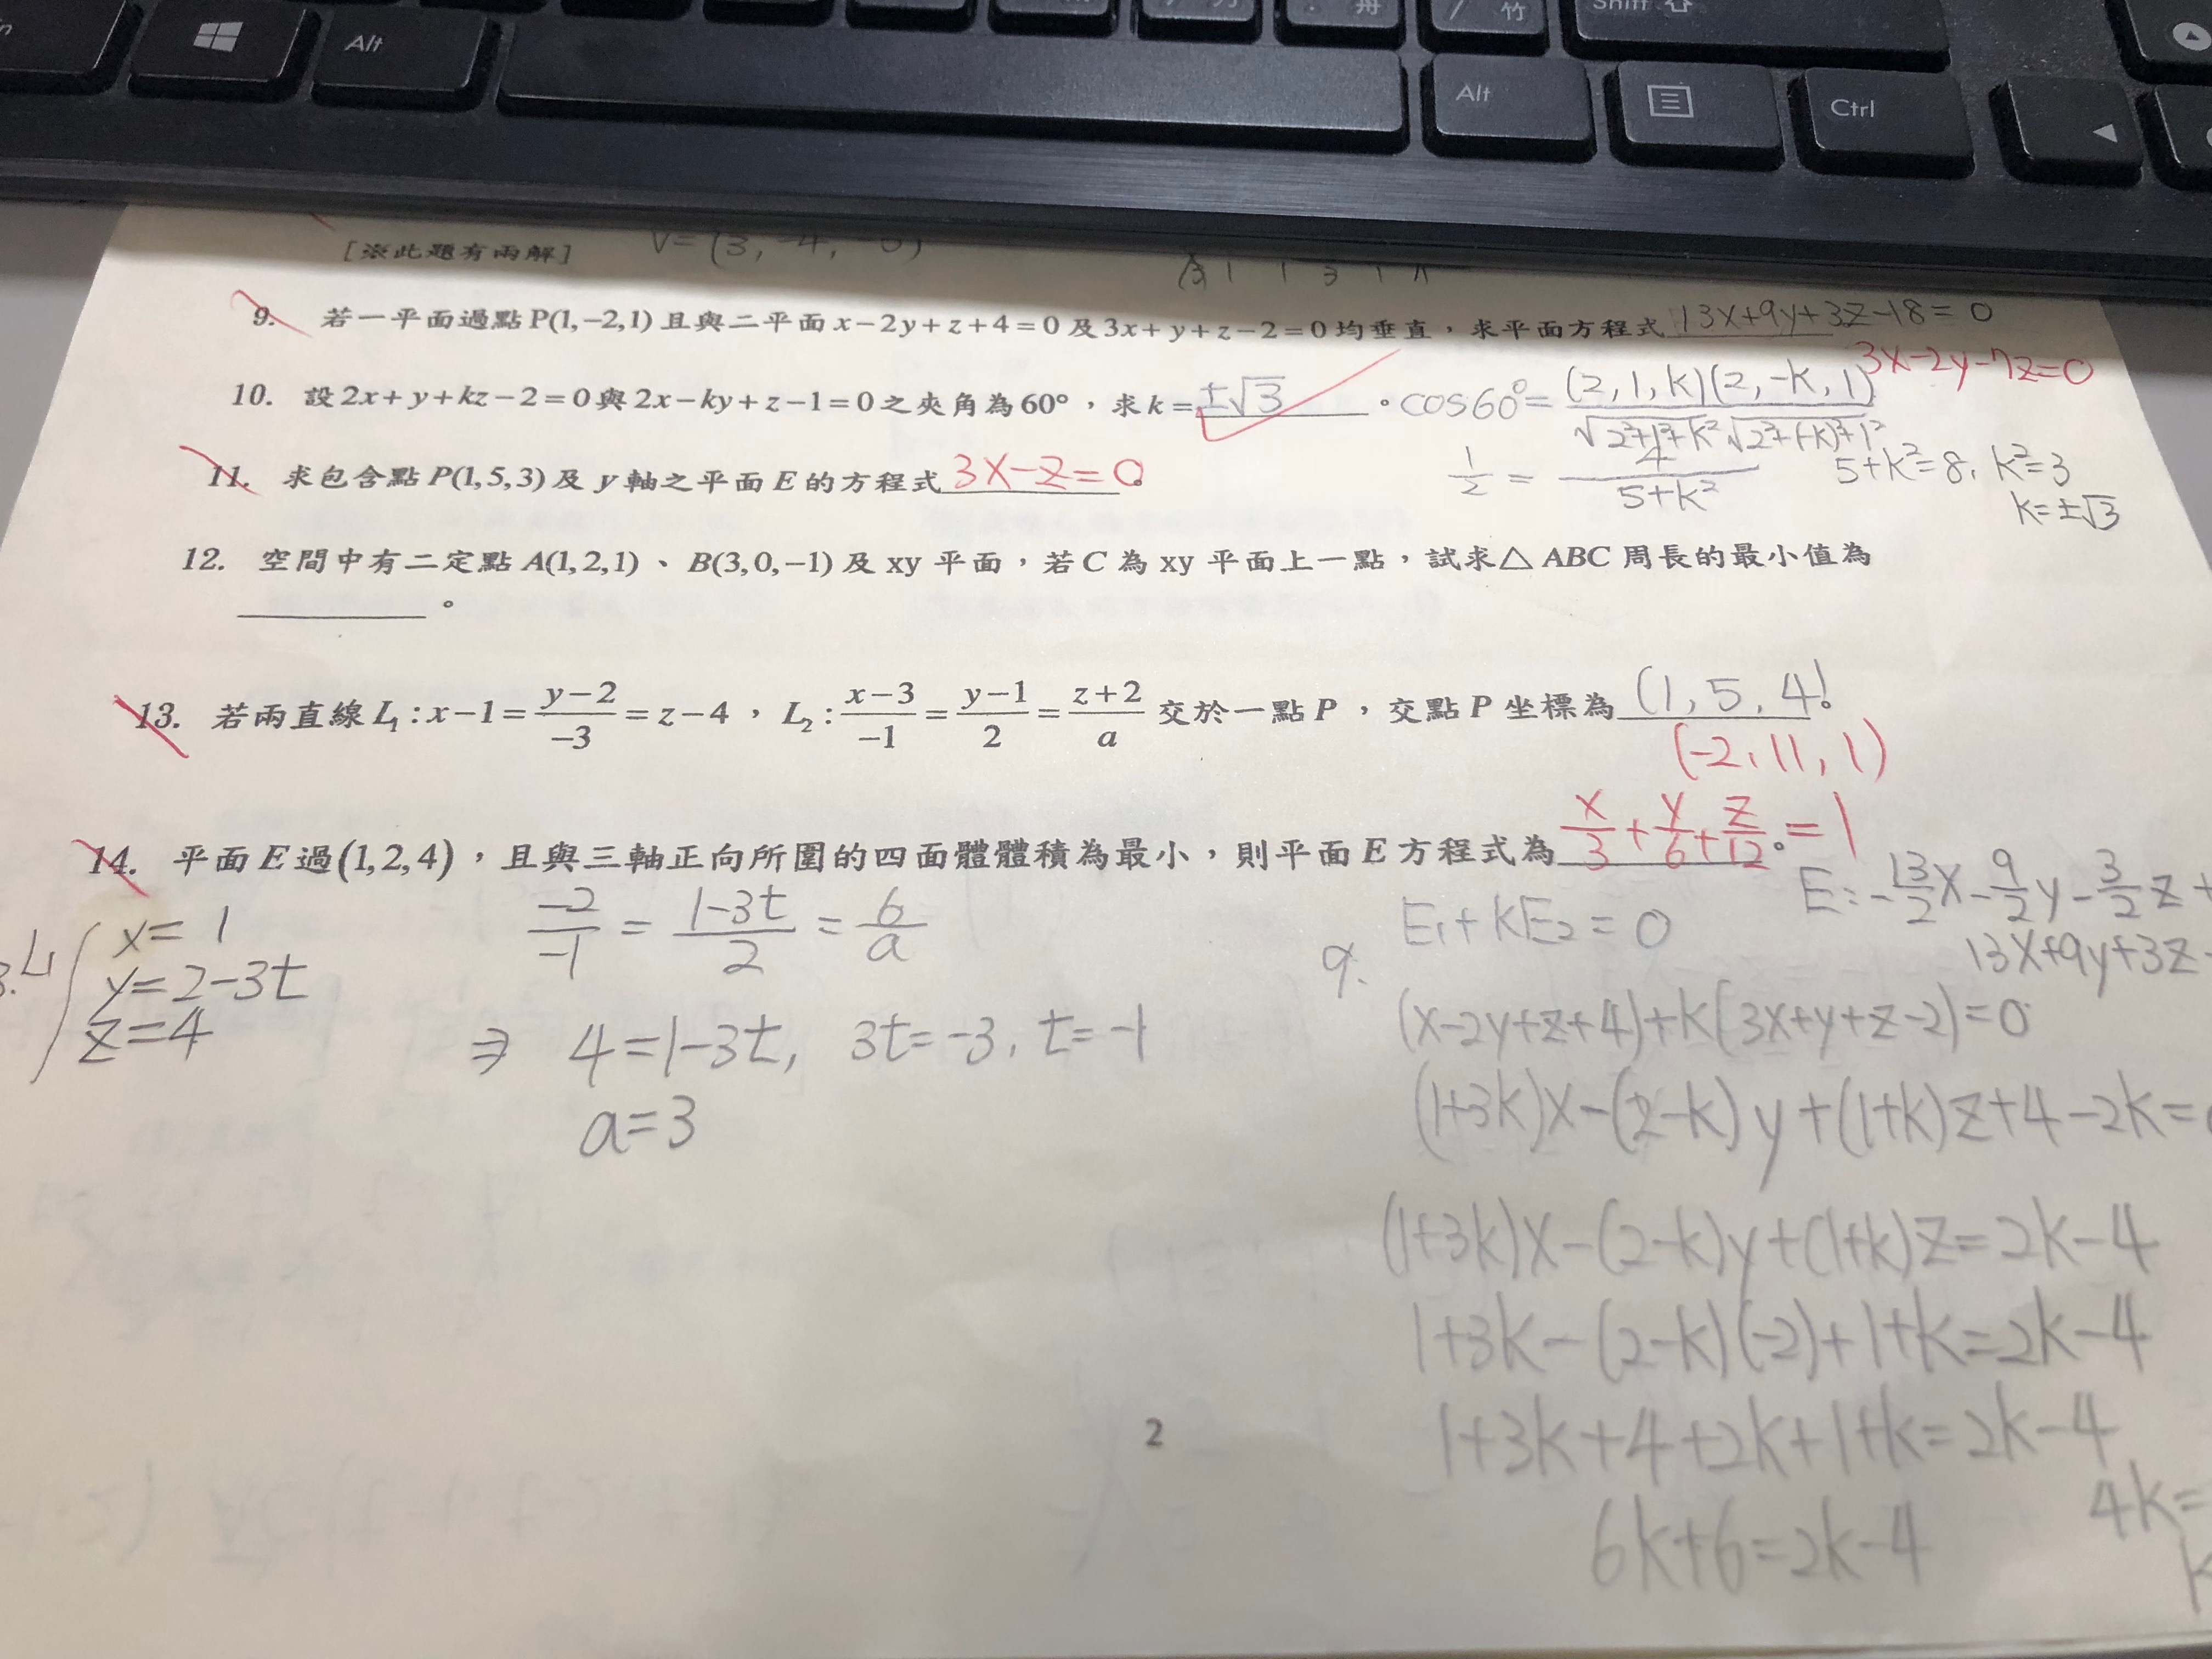 Alt
Shift
Alt
Ctrl
[※此題有兩解]
V=(3, -4,
9. 若一平面過點P(1,-2,1)且與二平面x-2y+z+4=0及3x+y+z-2=0均垂直，求平面方程式 13x+9y+3z-18=0
3x-2y-7z=0
10. 設2x+y+kz-2=0與2x-ky+z-1=0之夾角為60°，求k=±√3。
cos60°=(2,1,k)(2,-k,1)/√2²+1²+k²√2²+(-k)²+1²
1/2 = 4/5+k²
5+k²=8, k²=3
k=±√3
11. 求包含點P(1,5,3)及y軸之平面E的方程式 3x-z=0。
12. 空間中有二定點A(1,2,1)、B(3,0,-1)及xy平面，若C為xy平面上一點，試求△ABC周長的最小值為
。
13. 若兩直線L₁:x-1=y-2/-3=z-4，L₂:x-3/-1=y-1/2=z+2/a交於一點P，交點P坐標為(1,5,4)。
(-2,11,1)
14. 平面E過(1,2,4)，且與三軸正向所圍的四面體體積為最小，則平面E方程式為 x/3+y/6+z/12=1。
L₁
x=1
y=2-3t
z=4
-2/-1 = 1-3t/2 = 6/a
⇒ 4=1-3t, 3t=-3, t=-1
a=3
9.
E₁+kE₂=0
(x-2y+z+4)+k(3x+y+z-2)=0
(1+3k)x-(2-k)y+(1+k)z+4-2k=
(1+3k)x-(2-k)y+(1+k)z=2k-4
1+3k-(2-k)(-2)+1+k=2k-4
1+3k+4+2k+1+k=2k-4
6k+6=2k-4
4k=
k
E:-13/2x-9/2y-3/2z+
13x+9y+3z-
2